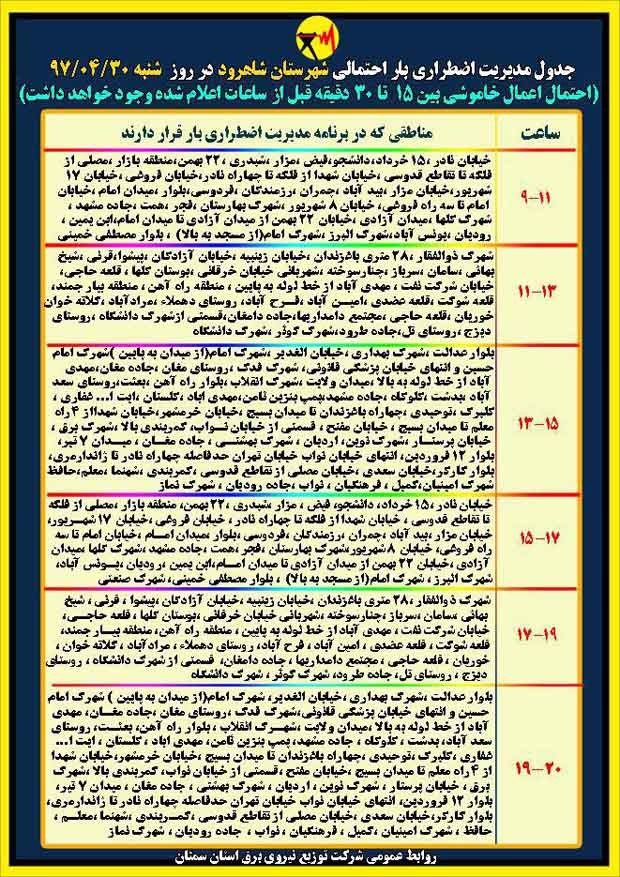 جدول مدیریت اضطراری بار احتمالی شهرستان شاهرود در روز شنبه ۹۷/۰۴/۳۰
(احتمال اعمال خاموشی بین ۱۵ تا ۳۰ دقیقه قبل از ساعات اعلام شده وجود خواهد داشت)
ساعت
مناطقی که در برنامه مدیریت اضطراری بار قرار دارند
۹-۱۱
خیابان نادر ،۱۵ خرداد،دانشجو،فیض ،مزار ،شیدری ،۲۲ بهمن،منطقه بازار ،مصلی از
فلکه تا تقاطع قدوسی ،خیابان شهدا از فلکه تا چهاراه نادر،خیابان فروغی ،خیابان ۱۷
شهریور،خیابان مزار ،بید آباد ،چمران ،رزمندگان ،فردوسی،بلوار ،میدان امام ،خیابان
امام تا سه راه فروغی، خیابان ۸ شهریور ،شهرک بهارستان ،فجر ،همت ،جاده مشهد ،
شهرک گلها ،میدان آزادی ،خیابان ۲۲ بهمن از میدان آزادی تا میدان امام،ابن یمین ،
رودیان ،یونس آباد،شهرک البرز ،شهرک امام(از مسجد به بالا) ، بلوار مصطفی خمینی
۱۱-۱۳
شهرک ذوالفقار ،۲۸ متری باغزندان ،خیابان زینبیه ،خیابان آزادگان ،پیشوا،قرنی ،شیخ
بهائی ،سامان ،سرباز ،چنارسوخته ،شهربانی خیابان خرقانی ،بوستان گلها ، قلعه حاجی،
خیابان شرکت نفت ، مهدی آباد از خط لوله به پایین ، منطقه راه آهن ، منطقه بیار جمند،
قلعه شوکت ،قلعه عضدی ،امین آباد ،فرح آباد، روستای دهملاء ،مرادآباد ،کلاته خوان
خوریان ، قلعه حاجی ،مجتمع دامداریها ،جاده دامغان،قسمتی ازشهرک دانشگاه ،روستای
دیزج ،روستای تل،جاده طرود،شهرک کوثر ،شهرک دانشگاه
۱۳-۱۵
بلوار عدالت ،شهرک بهداری ،خیابان الغدیر ،شهرک امام(از میدان به پایین )شهرک امام
حسین و انتهای خیابان پزشکی قانونی، شهرک فدک ،روستای مغان ،جاده مغان،مهدی
آباد از خط لوله به بالا، میدان ولایت ،شهرک انقلاب ،بلوار راه آهن ،بعثت،روستای سعد
آباد ،بدشت ،کلوکاه ،جاده مشهد،پمپ بنزین ثامن،مهدی اباد، گلستان ،ایت ا... غفاری ،
کلبرک ،توحیدی ،چهاراه باغزندان تا میدان بسیج ،خیابان خرمشهر،خیابان شهدااز ۴ راه
معلم تا میدان بسیج ، خیابان مفتح ، قسمتی از خیابان نواب، کمربندی بالا ،شهرک برق ،
خیابان پرستار ،شهرک نوین، اردیان ، شهرک بهشتی ، جاده مغان ، میدان ۷ تیر،
بلوار ۱۲ فروردین، انتهای خیابان نواب خیابان تهران حدفاصله چهاراه نادر تا ژاندارمری،
بلوار کارگر،خیابان سعدی ،خیابان مصلی از تقاطع قدوسی ،کمربندی ،شهنما ،معلم،حافظ
شهرک امینیان،کمیل ، فرهنگیان ، نواب ،جاده رودیان ، شهرک نماز
۱۵-۱۷
خیابان نادر ،۱۵خرداد، دانشجو، فیض ، مزار ،شیدری ،۲۲ بهمن، منطقه بازار ،مصلی از فلکه
تا تقاطع قدوسی ، خیابان شهدا از فلکه تا چهاراه نادر ، خیابان فروغی ، خیابان ۱۷ شهریور،
خیابان مزار ،بید آباد ،چمران ،رزمندگان ، فردوسی ،بلوار ،میدان امام ، خیابان امام تا سه
راه فروغی ، خیابان ۸ شهریور،شهرک بهارستان ،فجر،همت ،جاده مشهد،شهرک گلها ،میدان
آزادی ، خیابان ۲۲ بهمن از میدان آزادی تا میدان امام،ابن یمین ، رودیان ،یونس آباد،
شهرک البرز ، شهرک امام(از مسجد به بالا) ، بلوار مصطفی خمینی، شهرک صنعتی
۱۷-۱۹
شهرک ذوالفقار ،۲۸ متری باغزندان ،خیابان زینبیه ،خیابان آزادگان ،پیشوا ، قرنی ، شیخ
بهائی ،سامان ،سرباز ،چنارسوخته ،شهربانی خیابان خرقانی ،بوستان گلها ، قلعه حاجی،
خیابان شرکت نفت ، مهدی آباد از خط لوله به پایین ، منطقه راه آهن، منطقه بیار جمند،
قلعه شوکت ، قلعه عضدی ، امین آباد ، فرح آباد، روستای دهملاء ، مرادآباد ، کلاته خوان
خوریان ، قلعه حاجی ، مجتمع دامداریها ، جاده دامغان، قسمتی از شهرک دانشگاه ، روستای
دیزج ، روستای تل، جاده طرود ، شهرک کوثر ، شهرک دانشگاه
۱۹-۲۰
بلوار عدالت ،شهرک بهداری ،خیابان الغدیر، شهرک امام(از میدان به پایین ) شهرک امام
حسین و انتهای خیابان پزشکی قانونی،شهرک فدک ، روستای مغان ،جاده مغان، مهدی
آباد از خط لوله به بالا، میدان ولایت ،شهرک انقلاب ،بلوار راه آهن، بعثت، روستای
سعد آباد، بدشت ، کلوکاه ، جاده مشهد، پمپ بنزین ثامن، مهدی اباد ، گلستان ، ایت ا...
غفاری ، کلبرک ،توحیدی، چهاراه باغزندان تا میدان بسیج ،خیابان خرمشهر،خیابان شهدا
از ۴ راه معلم تا میدان بسیج، خیابان مفتح ، قسمتی از خیابان نواب، کمربندی بالا ،شهرک
برق ، خیابان پرستار ، شهرک نوین ، اردیان ، شهرک بهشتی ، جاده مغان ، میدان ۷ تیر،
بلوار ۱۲فروردین، انتهای خیابان نواب خیابان تهران حدفاصله چهاراه نادر تا ژاندارمری،
بلوار کارگر، خیابان سعدی ،خیابان مصلی از تقاطع قدوسی ،کمربندی ،شهنما،معلم ،
حافظ ، شهرک امینیان ،کمیل ، فرهنگیان ، نواب ، جاده رودیان ، شهرک نماز
روابط عمومی شرکت توزیع نیروی برق استان سمنان